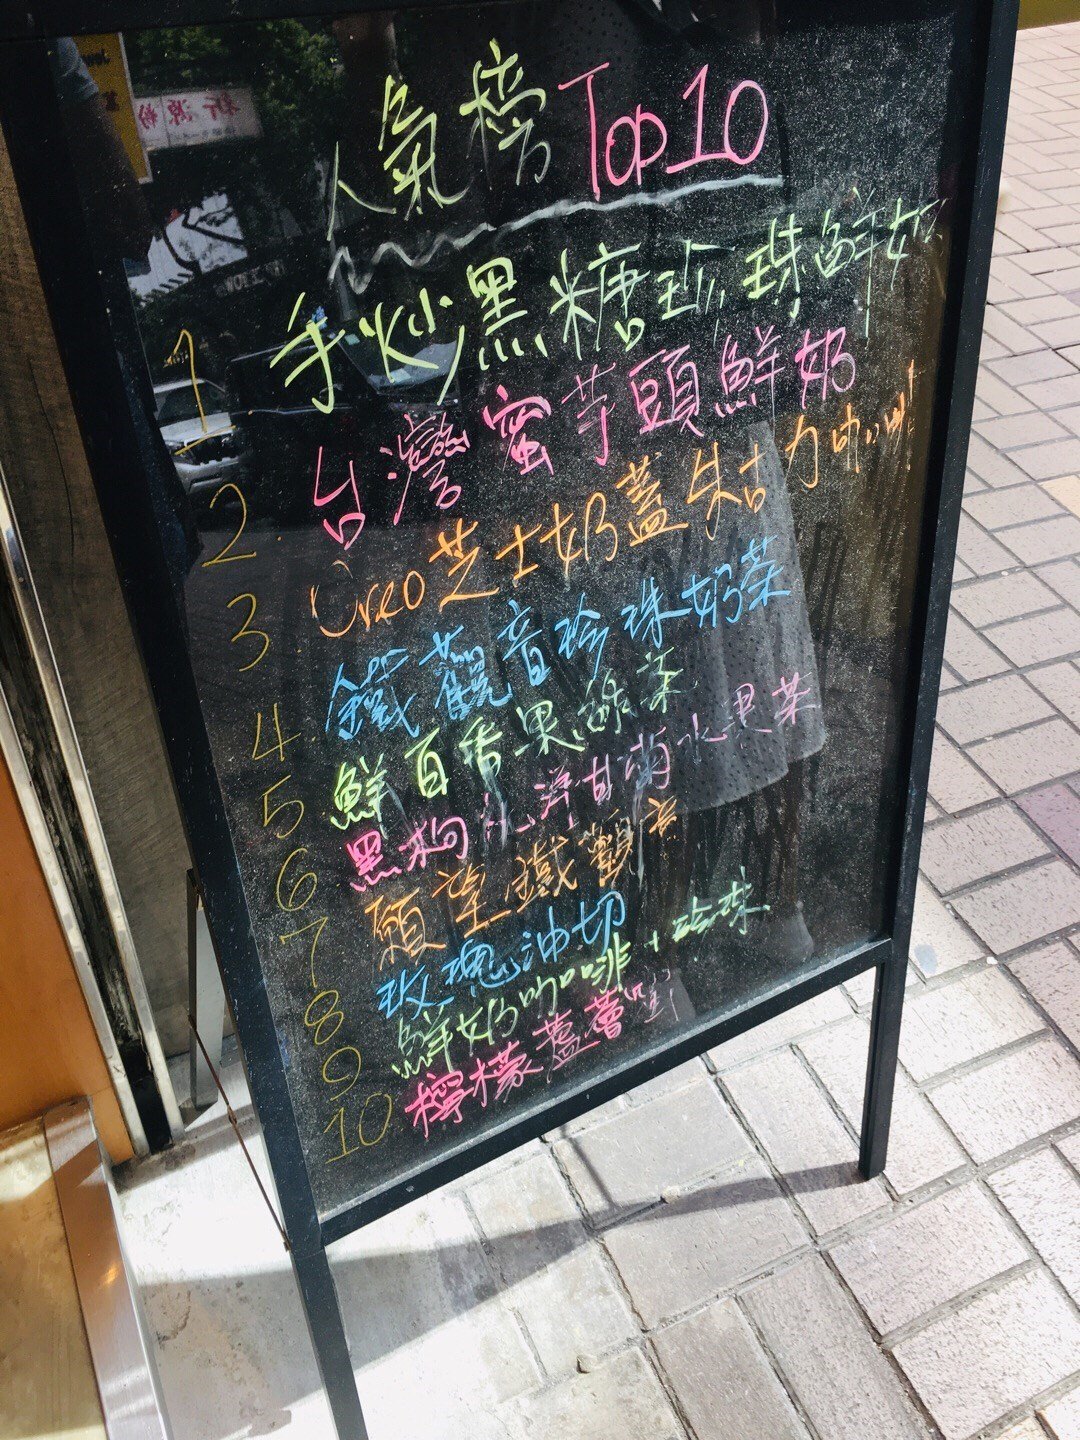 人氣榜 Top 10
1 手炒黑糖珍珠鮮奶
2. 台灣蜜芋頭鮮奶
3 Oreo芝士奶蓋朱古力咖啡
4. 鐵觀音珍珠奶茶
5 鮮百香果綠茶
6 黑枸杞洋甘菊水果茶
7 願望鐵觀音
8 玫瑰油切
9 鮮奶咖啡+珍珠
10 檸檬蘆薈